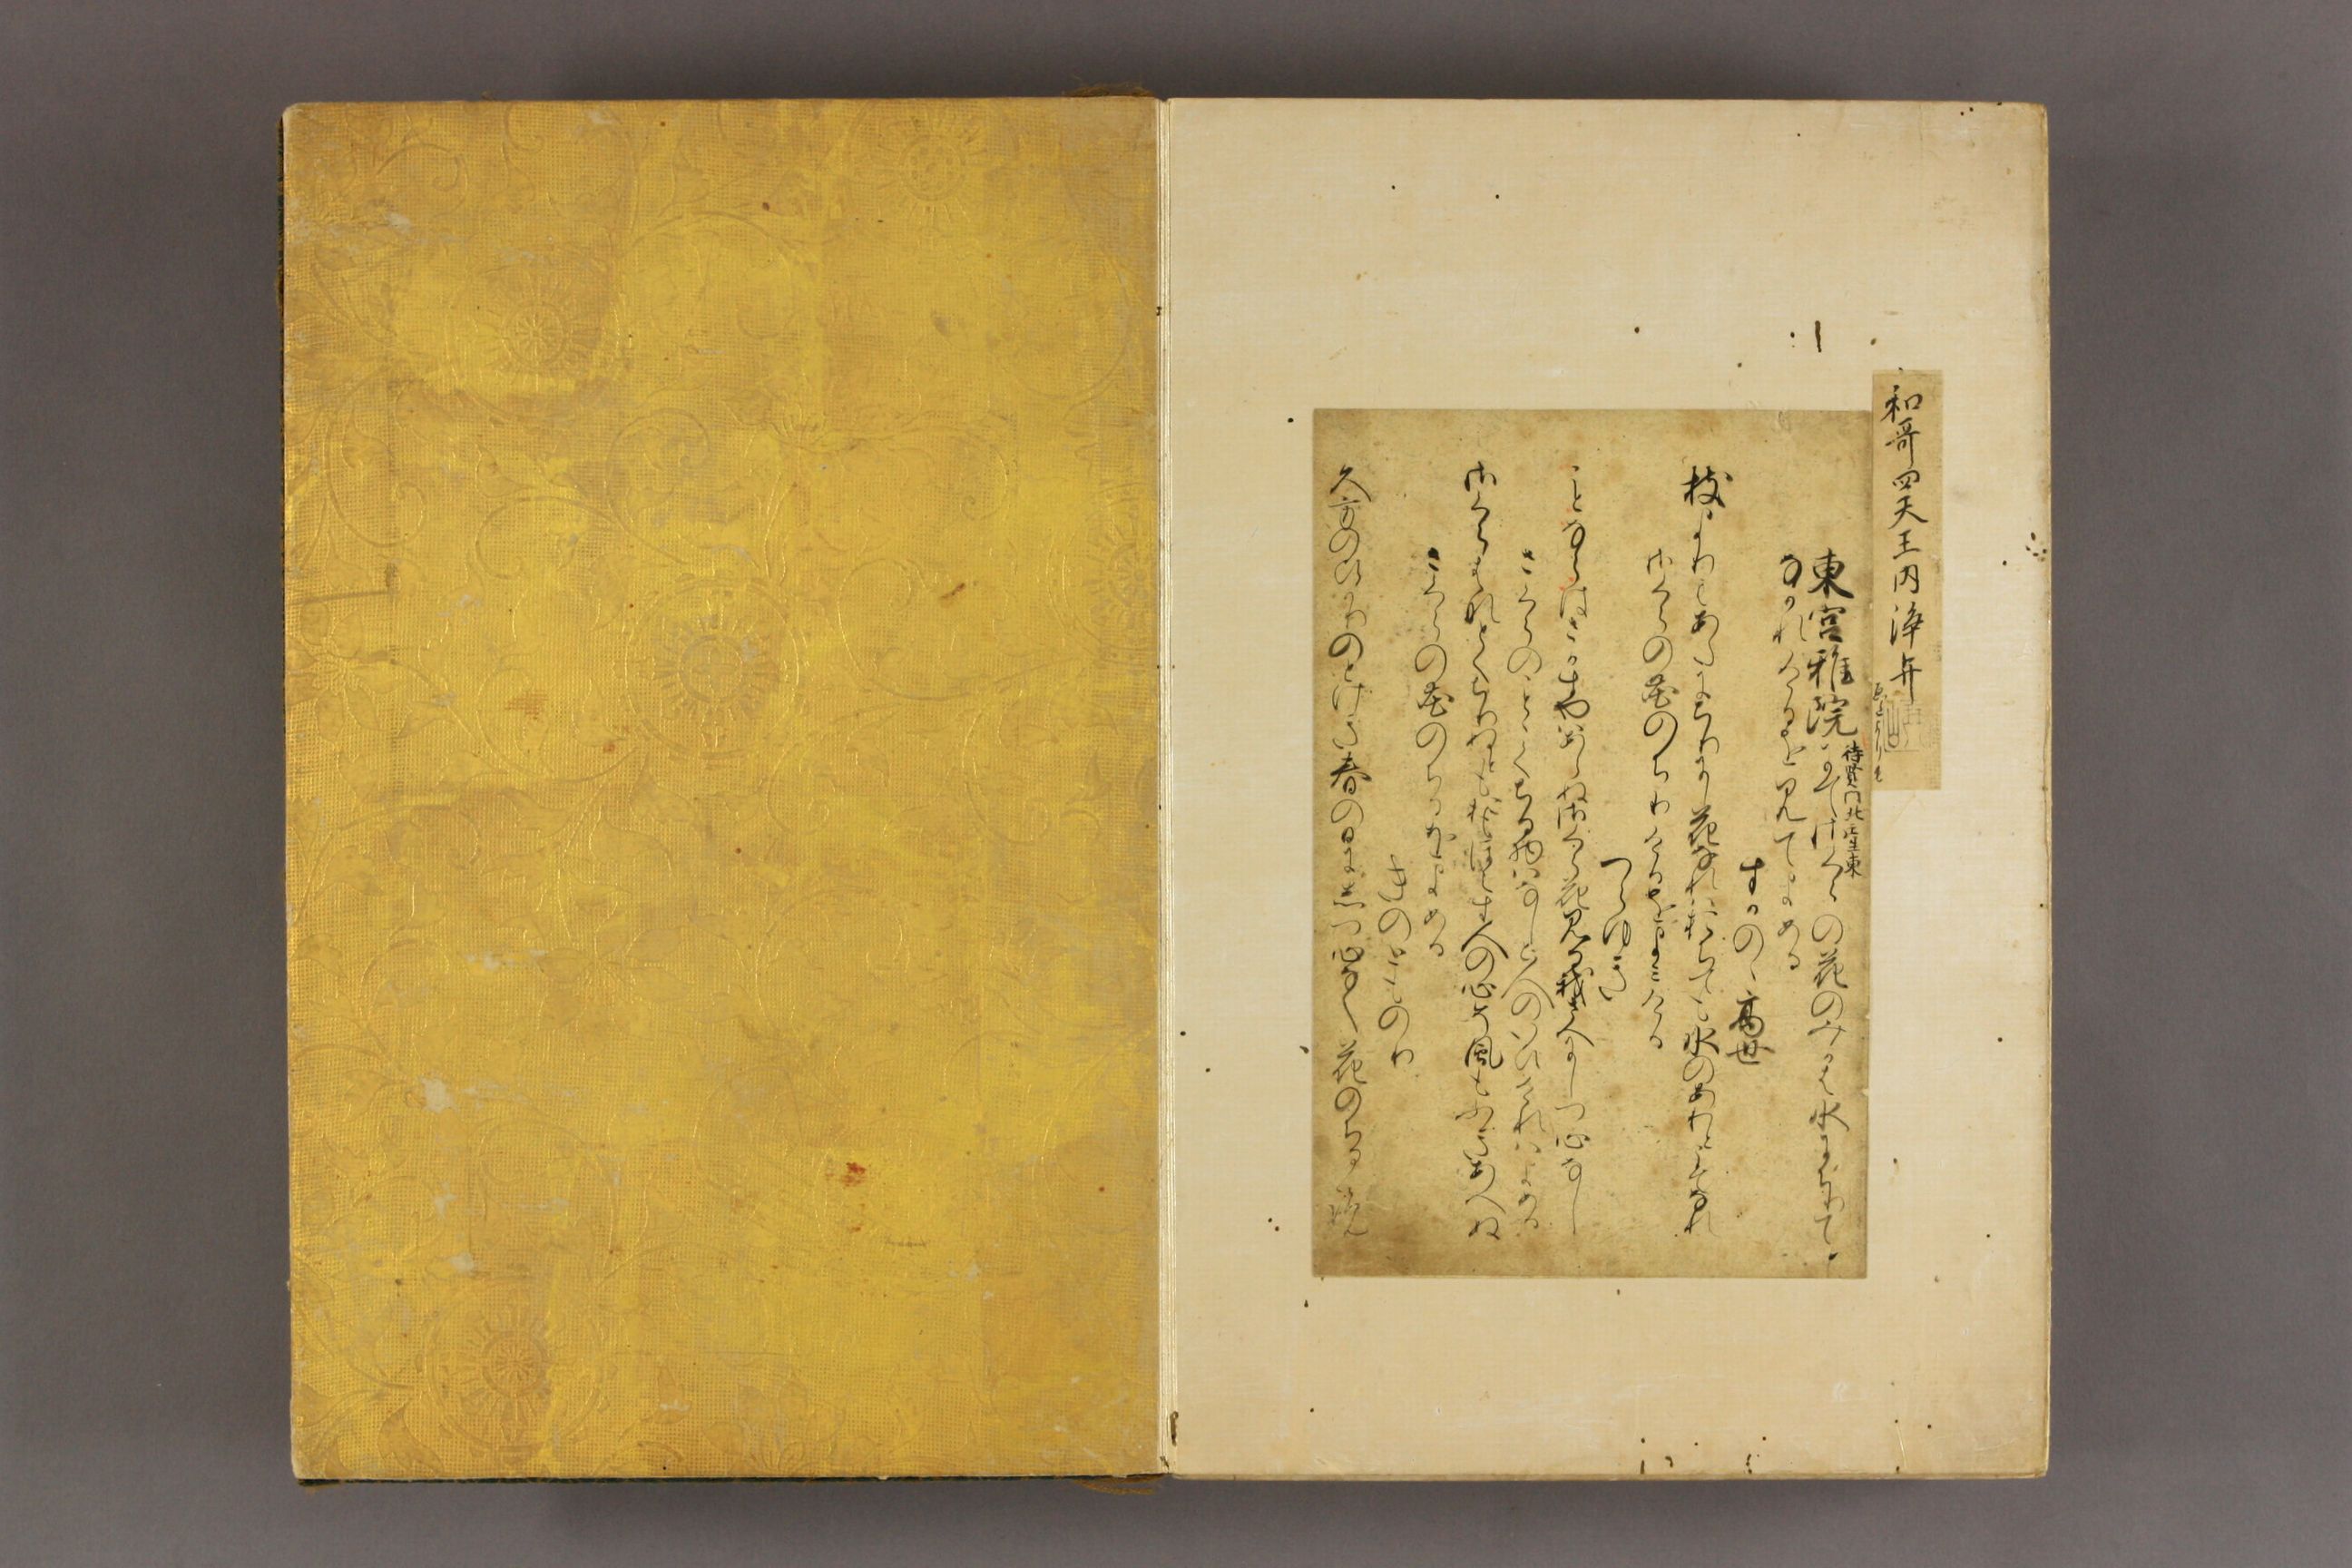 和哥四天王内浄弁
東宮雅院にてさくらの花のみかは水にちりて
待賢門北壬生東
なかれけるを見てよめる
すかのゝ高世
枝よりもあたにちりにし花なれはおちても水のあわとこそなれ
さくらの花のちりけるをよみける
つらゆき
ことならはさかすやはあらぬさくら花見る我さへにしつ心なし
さくらのことゝくちる物はなしと人のいひけれはよめる
さくら花とくちりぬともおもほえす人の心そ風もふきあへぬ
さくらの花のちるをよめる
きのとものり
久方のひかりのとけき春の日にしつ心なく花のちる覧